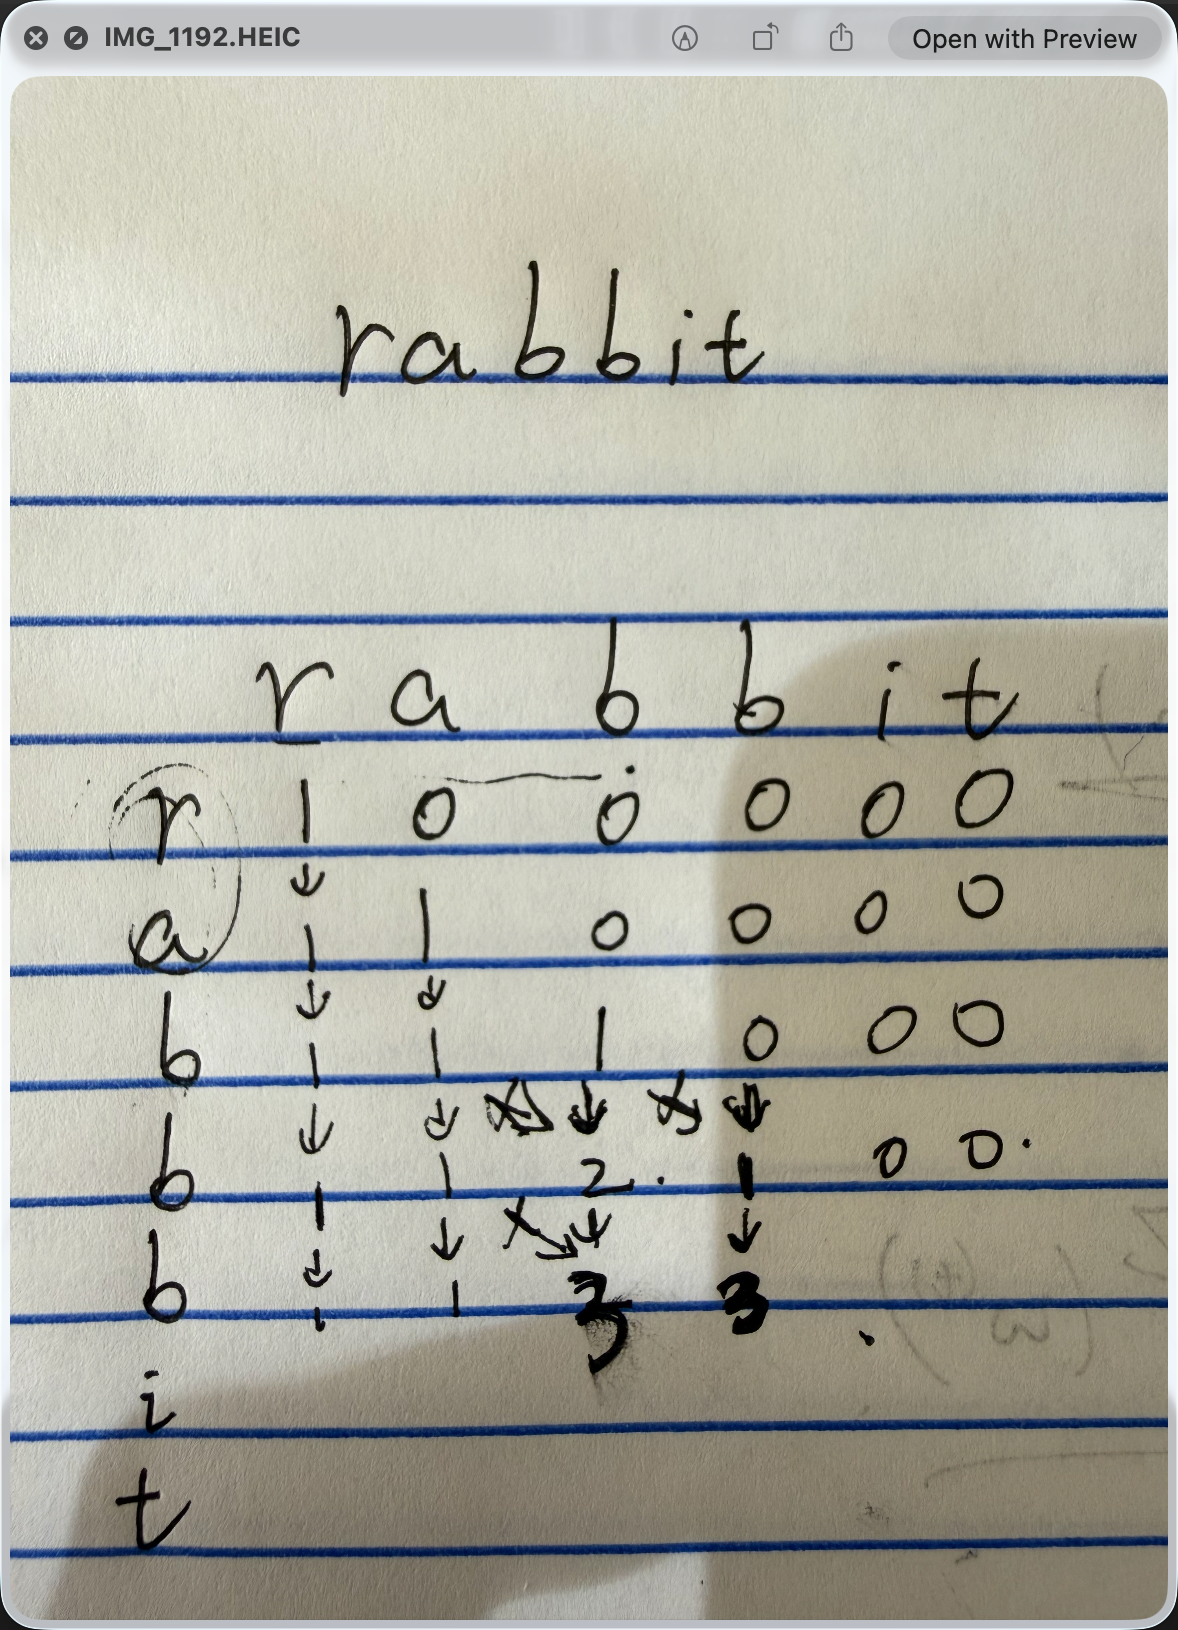 IMG_1192.HEIC Open with Preview
rabbit
r a b b i t
r 1 0 0 0 0 0
a 1 1 0 0 0 0
b 1 1 1 0 0 0
b 1 1 2 1 0 0
b 1 1 3 3
i
t